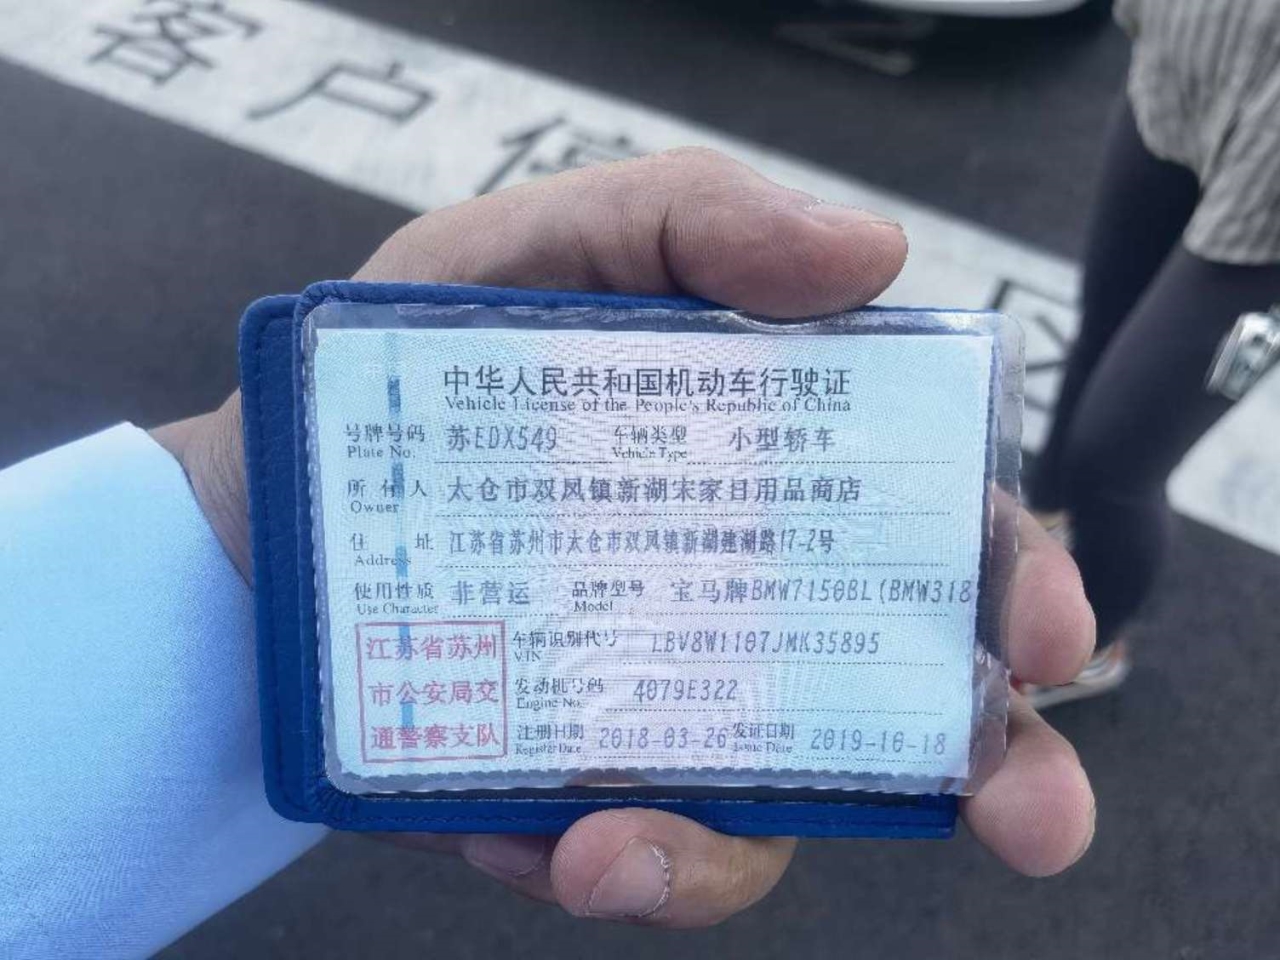 客户停
区
中华人民共和国机动车行驶证
Vehicle License of the People's Republic of China
号牌号码 苏EDX549 车辆类型 小型轿车
Plate No. Vehicle Type
所有人 太仓市双凤镇新湖宋家日用品商店
Owner
住址 江苏省苏州市太仓市双凤镇新湖建湖路17-2号
Address
使用性质 非营运 品牌型号 宝马牌BMW7150BL(BMW318
Use Character Model
江苏省苏州
市公安局交
通警察支队
车辆识别代号 LBV8W1107JMK35895
VIN
发动机号码 4079E322
Engine No.
注册日期 2018-03-26 发证日期 2019-10-18
Register Date Issue Date